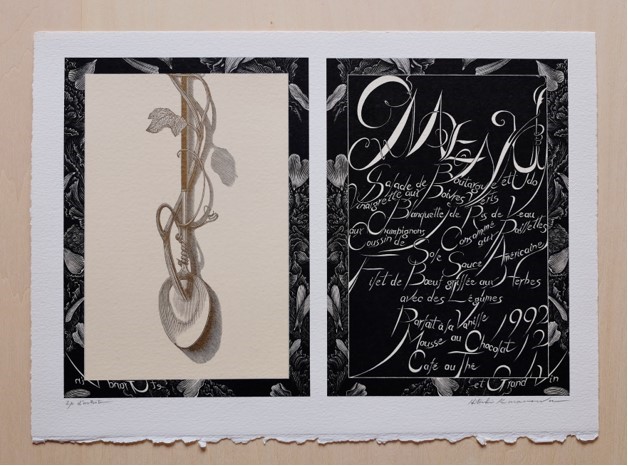 MENU
Salade de Boutargue et Udo
Vinaigrette aux Poivres Verts
Blanquette de Ris de Veau
aux Champignons Consommé aux Paillettes
Coussin de Sole Sauce Américaine
Filet de Bœuf grillée aux Herbes
avec des Légumes
Parfait à la Vanille 1992
Mousse au Chocolat 12
Café ou Thé
et Grand Vin